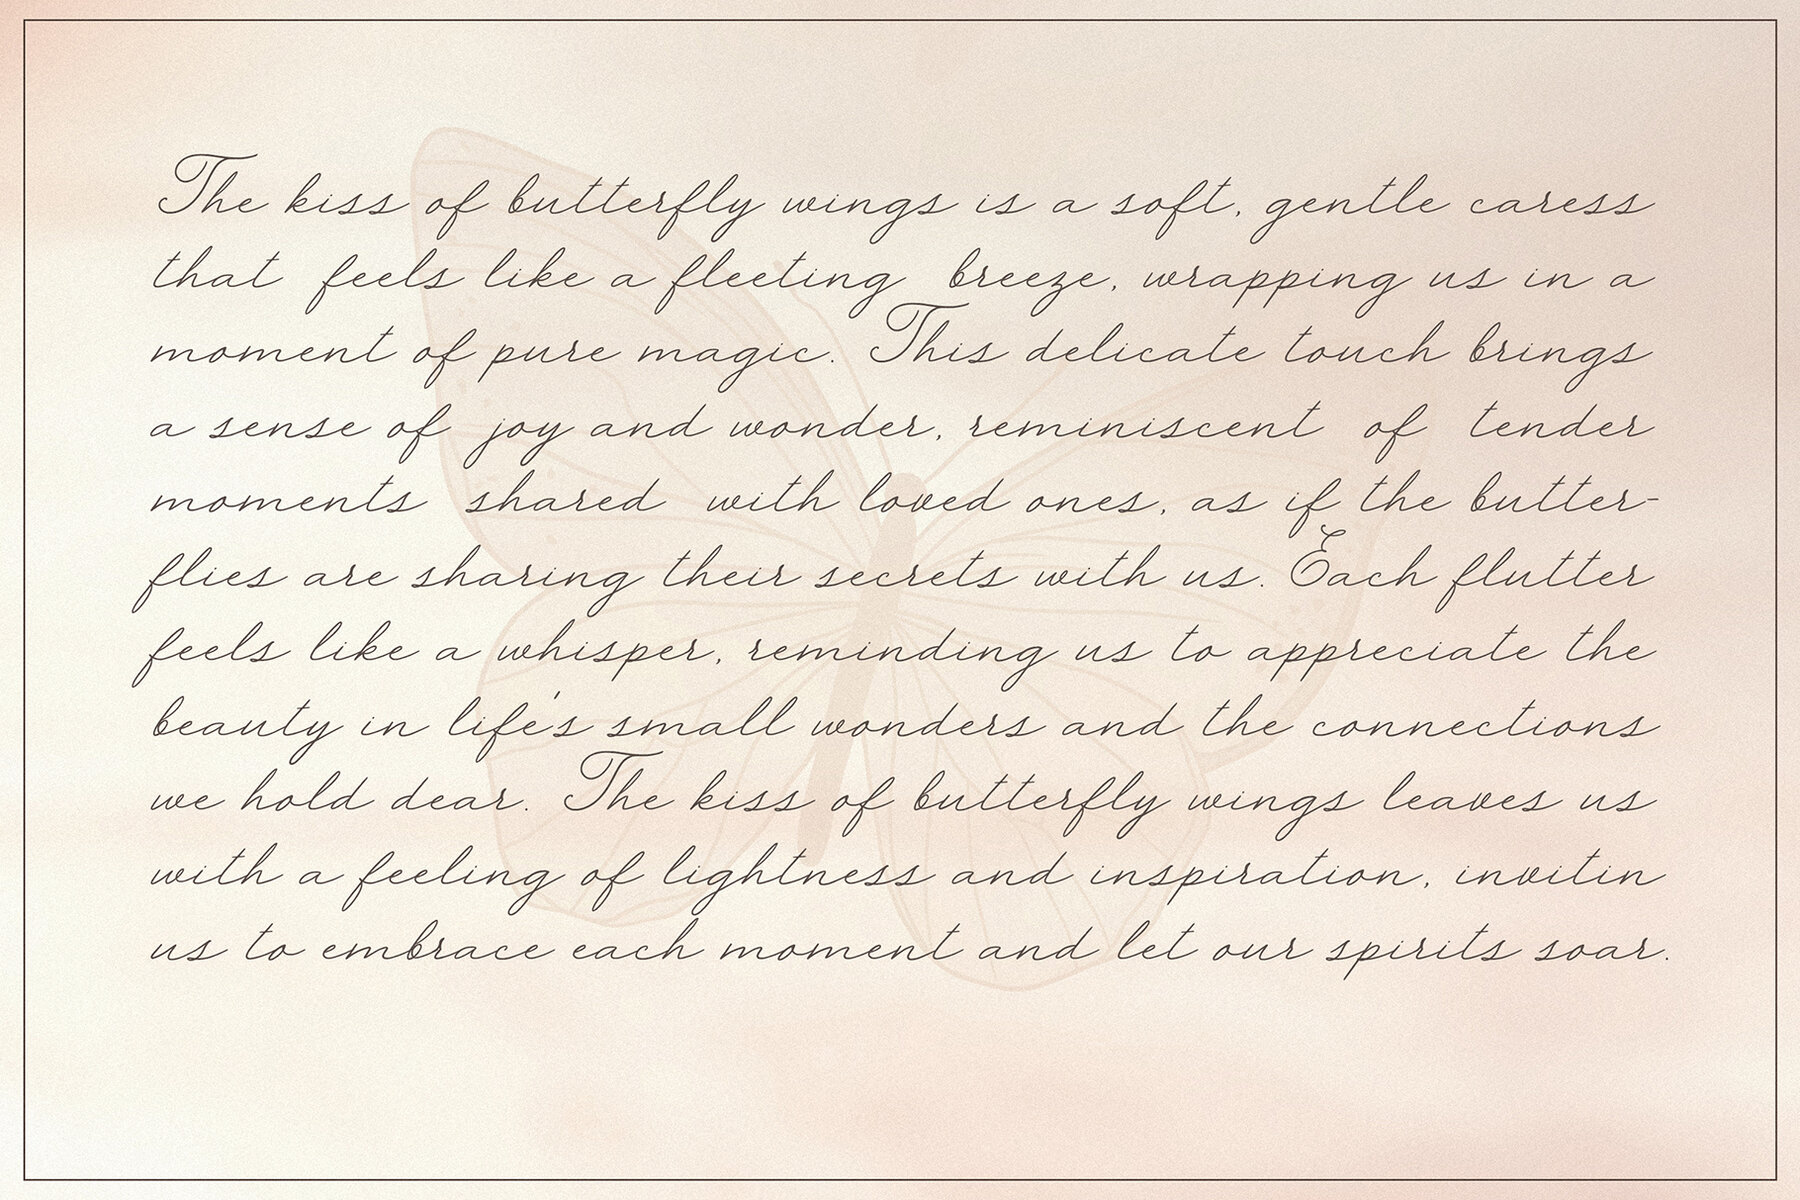 The kiss of butterfly wings is a soft, gentle caress
that feels like a fleeting breeze, wrapping us in a
moment of pure magic. This delicate touch brings
a sense of joy and wonder, reminiscent of tender
moments shared with loved ones, as if the butter-
flies are sharing their secrets with us. Each flutter
feels like a whisper, reminding us to appreciate the
beauty in life's small wonders and the connections
we hold dear. The kiss of butterfly wings leaves us
with a feeling of lightness and inspiration, invitin
us to embrace each moment and let our spirits soar.